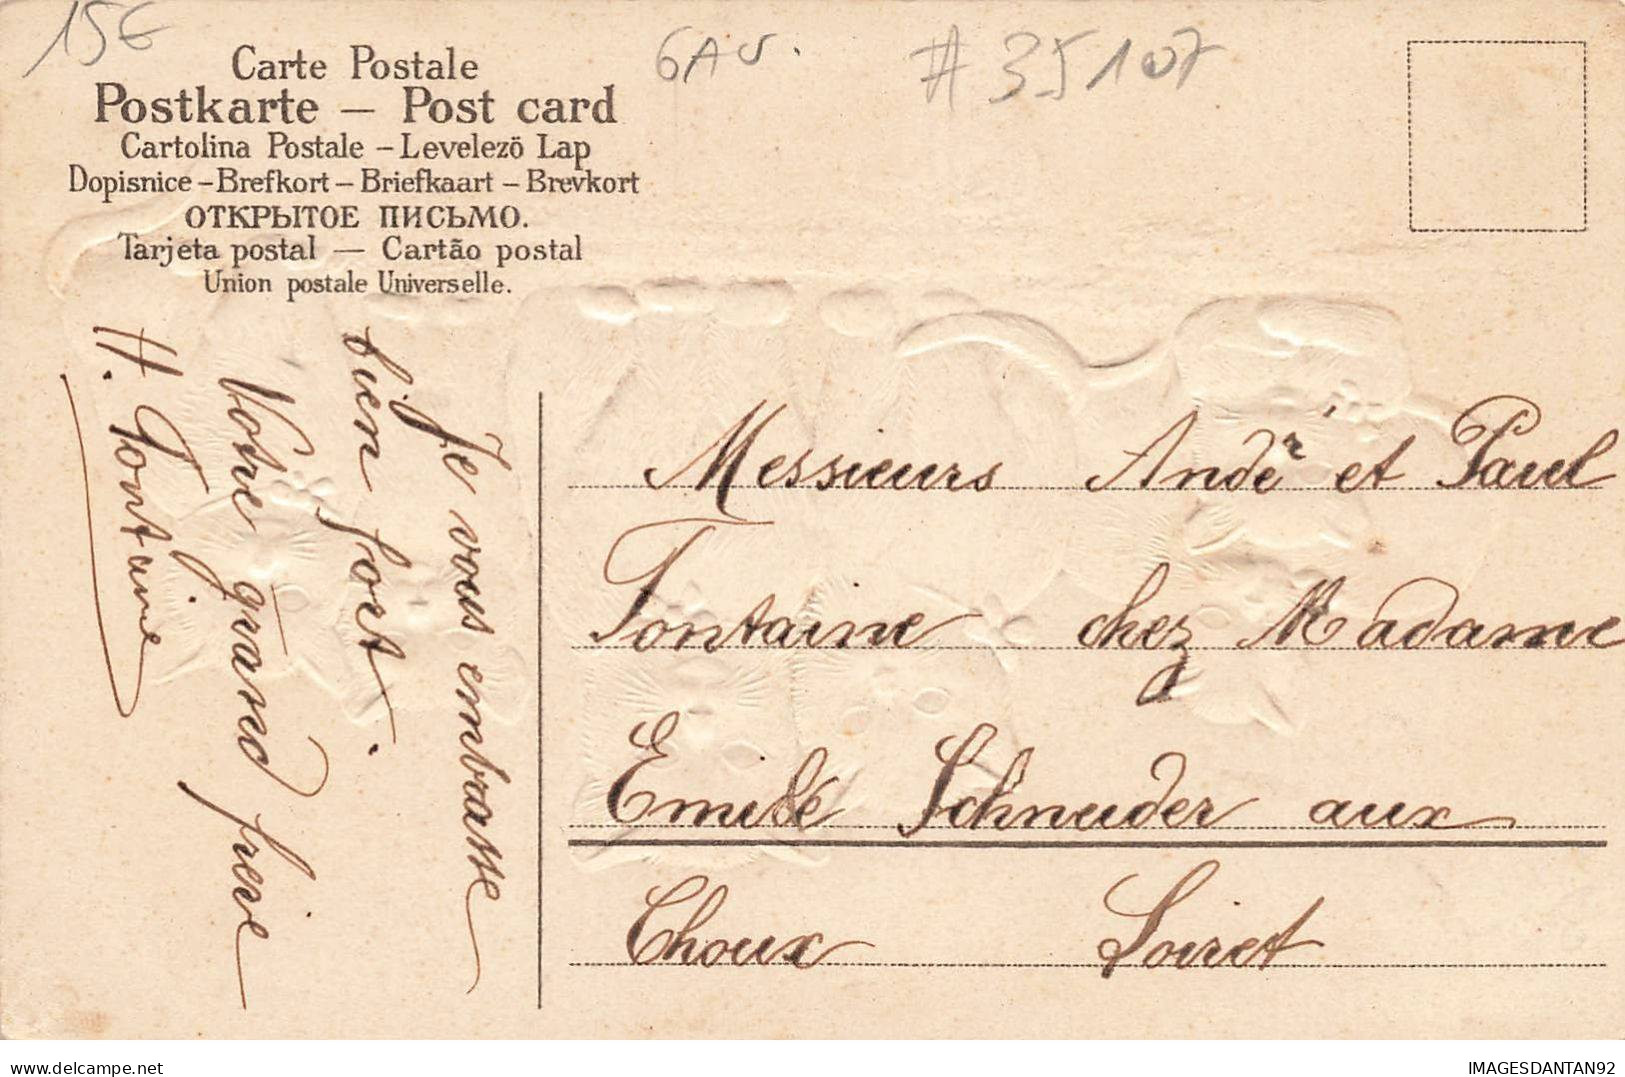 15€
6AV.
#35107
Carte Postale
Postkarte — Post card
Cartolina Postale – Levelező Lap
Dopisnice – Brefkort – Briefkaart – Brevkort
ОТКРЫТОЕ ПИСЬМО.
Tarjeta postal — Cartão postal
Union postale Universelle.
Je vous embrasse
bien fort.
Votre grand frère
H. Fontaine
Messieurs André et Paul
Fontaine chez Madame
Emile Schneider aux
Choux Loiret
delcampe.net
IMAGESDANTAN92